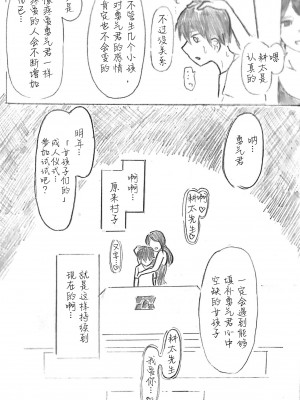 嘿…
耕太是
认真的
不过没关系
不管生几个小孩
对惠气君的感情
肯定也不会变的
像惠气君一样
的人会不断增加
吧…
呐…
惠气君
明年…
「女孩子们的」
成人仪式…
参加试试吧？
啊啊…
原来村子
耕太先生
就是这样持续到
现在的啊…
一定会遇到能够
填补惠气君心中
空缺的女孩子
耕太先生
我爱你…